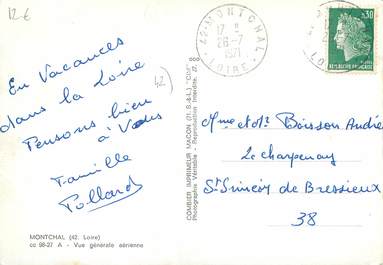 12 €
En Vacances
dans la Loire
Pensons bien
à Vous
Famille
Pollard
42
MONTCHAL (42. Loire)
cc 98-27 A - Vue générale aérienne
COMBIER IMPRIMEUR MACON (71. S.-&-L.) "CIM"
Photographie Véritable - Reproduction Interdite
42 MONTCHAL
17 H
26-7
1971
LOIRE
0,30
REPUBLIQUE FRANCAISE
Mme et Mr Boisson André
Le Charpenay
St Siméon de Bressieux
38